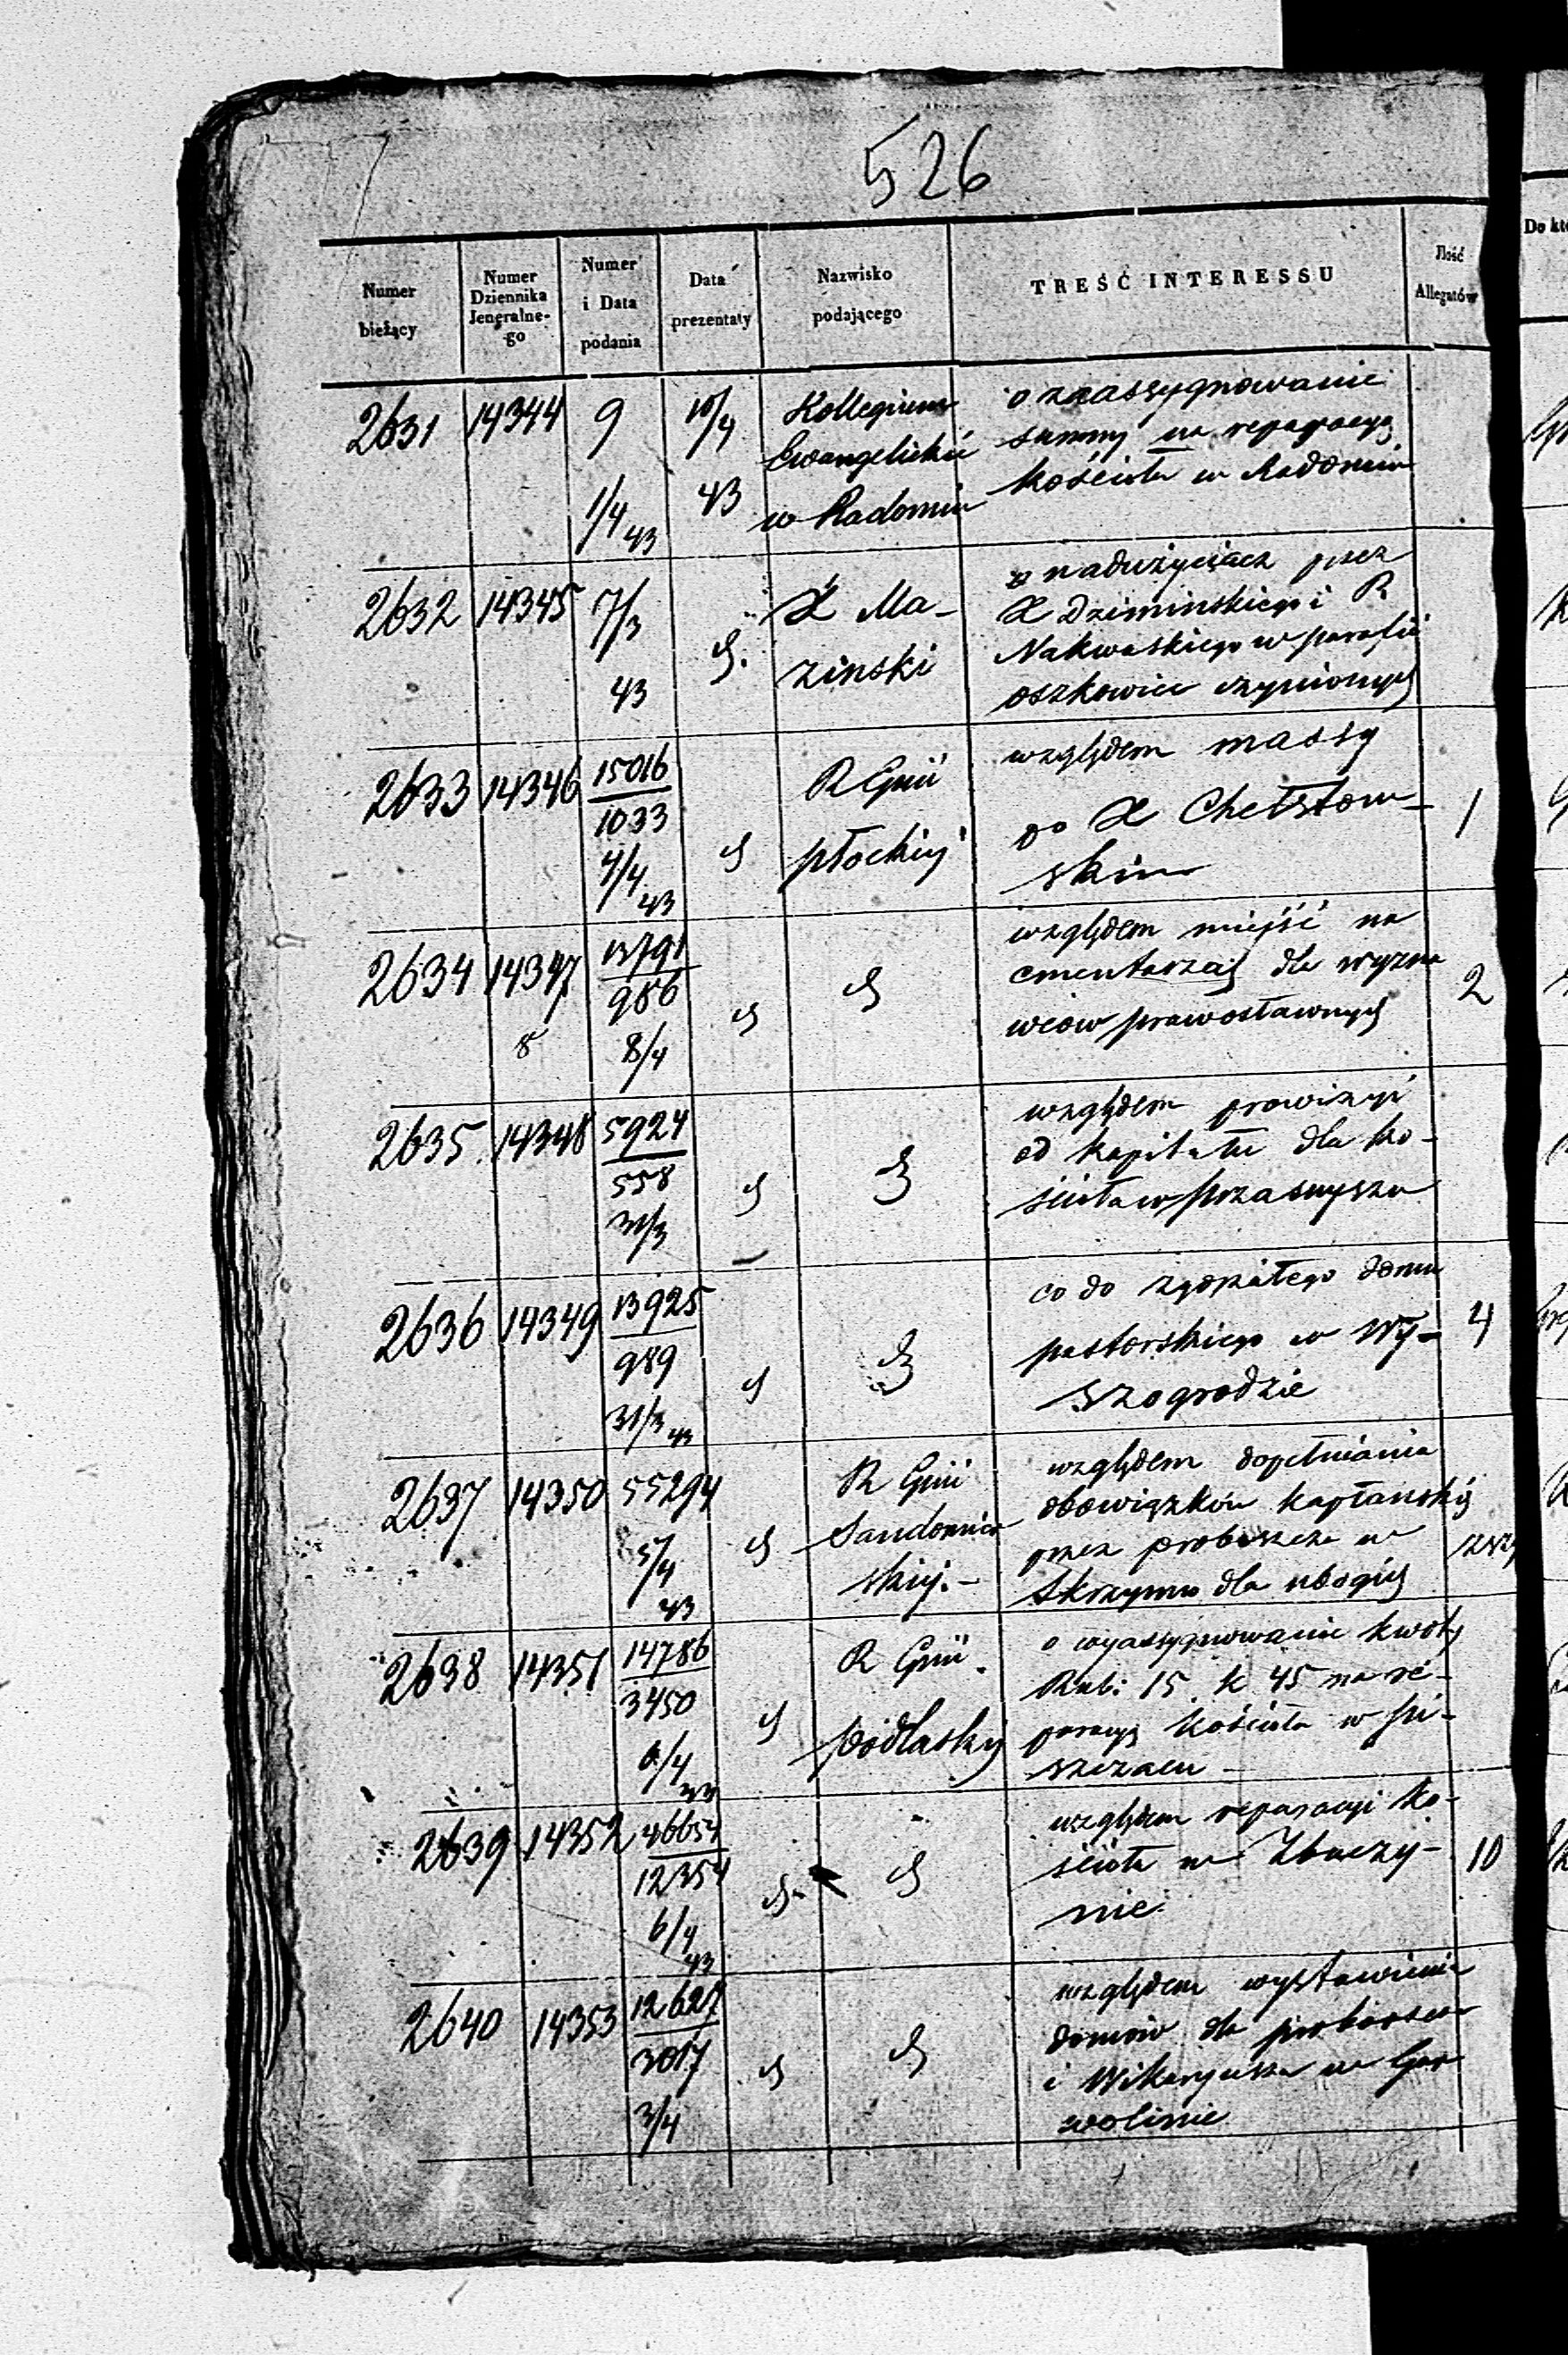 526
Numer bieżący
Numer Dziennika Jeneralne-go
Numer i Data podania
Data prezentaty
Nazwisko podającego
TREŚĆ INTERESSU
Ilość Allegatów
Do
2631 14344 9 1/4 43 10/4 43
Kollegium
Ewangelickie
w Radomiu
o zaassygnowanie
summy na reparacyą
kościoła w Radomiu
2632 14345 7/3 43 d.
X Ma-
zinski
o nadużyciach przez
X Dziminskiego i R
Nakwaskiego w parafii
oszkowice czynionych
2633 14346 15016 1033 4/4 43 d
R Gnii
płockiej
względem massy
po X Chełstow-
skim
1
2634 14347 8 13791 986 8/4 d
d
względem miejść na
cmentarzach dla wyzna
wców prawosławnych
2
2635 14348 5924 558 31/3 d
d
względem prowizyi
od kapitału dla ko-
ścioła w Przasnyszu
2636 14349 13925 989 31/3 43 d
d
co do zgorzałego domu
pastorskiego w Wy-
szogrodzie
4
2637 14350 55294 5/4 43 d
R Gnii
Sandomier
skiej.-
względem dopełniania
obowiązków kapłańskich
przez proboszcza w
Skrzynnie dla ubogich
2638 14351 14786 3450 6/4 d
R Gnii.
podlaskiej
o wyassygnowanie kwoty
Rub: 15 k 45 na re-
paracyą kościoła w Pi-
szczacu
2639 14352 46654 12354 6/4 43 d
d
względem reparacyi ko-
ścioła w Zbuczy-
nie.
10
2640 14353 12627 3017 3/4 d
d
względem wystawienia
domów dla proboszcza
i Wikaryusza w Gar
wolinie